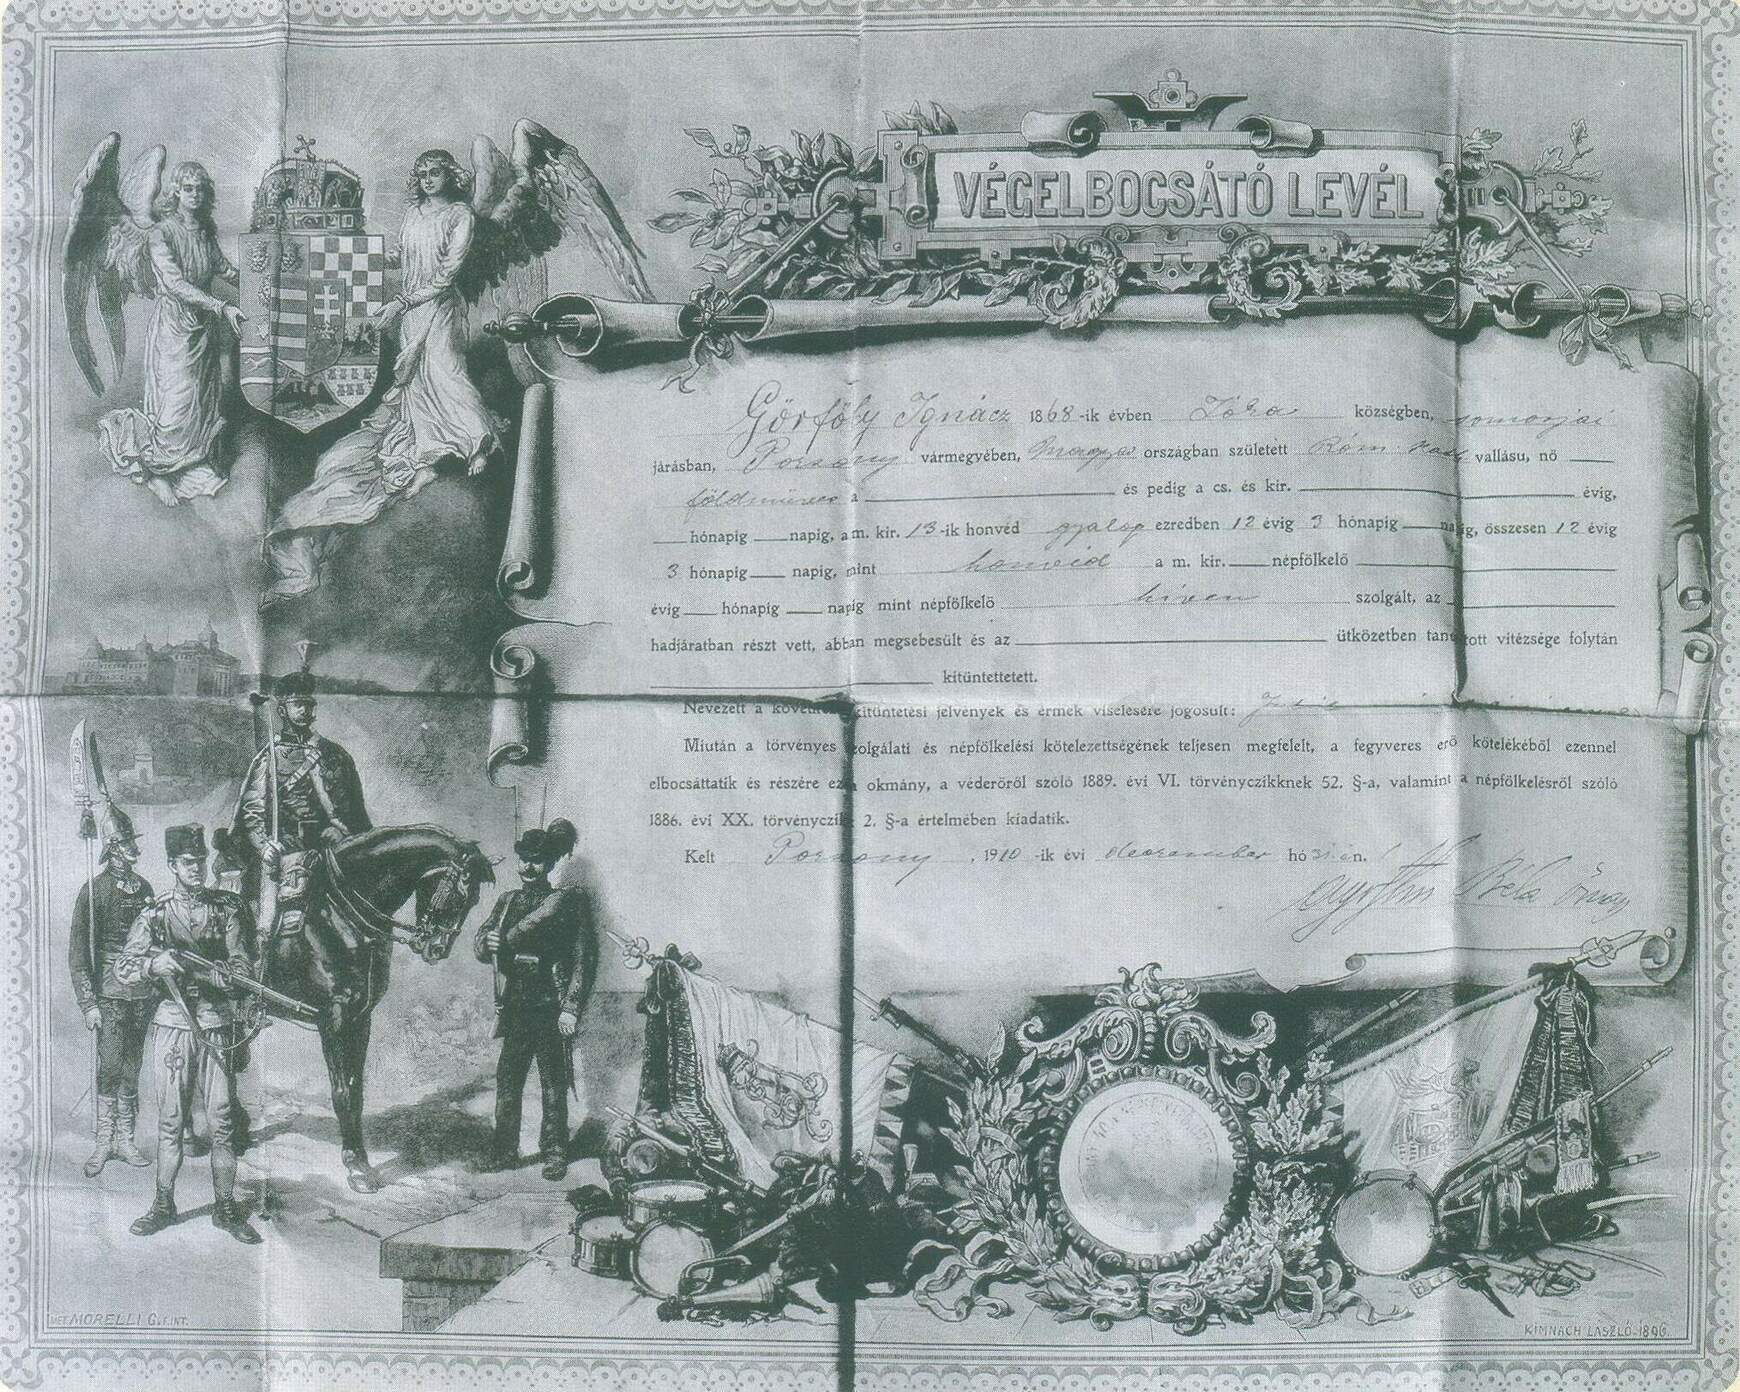 VÉGELBOCSÁTÓ LEVÉL
Görföly Ignácz 1868-ik évben községben, somorjai
járásban, Pozsony vármegyében, Magyar országban született Róm. kath vallásu, nő
földműves a és pedig a cs. és kir. évig,
hónapig napig, a m. kir. 13-ik honvéd gyalog ezredben 12 évig 3 hónapig napig, összesen 12 évig
3 hónapig napig, mint honvéd a m. kir. népfölkelő
évig hónapig napig mint népfölkelő híven szolgált, az
hadjáratban részt vett, abban megsebesült és az ütközetben tanusított vitézsége folytán
kitüntettetett.
Nevezett a következő kitüntetési jelvények és érmek viselésére jogosult:
Miután a törvényes szolgálati és népfölkelési kötelezettségének teljesen megfelelt, a fegyveres erő kötelékéből ezennel
elbocsáttatik és részére ezen okmány, a véderőről szóló 1889. évi VI. törvényczikknek 52. §-a, valamint a népfölkelésről szóló
1886. évi XX. törvényczikk 2. §-a értelmében kiadatik.
Kelt Pozsony, 1910-ik évi deczember hó 31-én.
Béla őrnagy
MORELLI G. F. INT.
KIMNACH LÁSZLÓ. 1896.